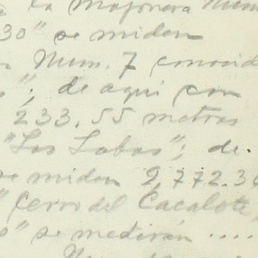 la Mojonera Núm
30" se miden
Num. 7 conocid
s"; de aqui con
233.55 metros
"Los Lobos"; de
se miden 9,772.30
" Cerro del Cacalote,
o" se medirán ....